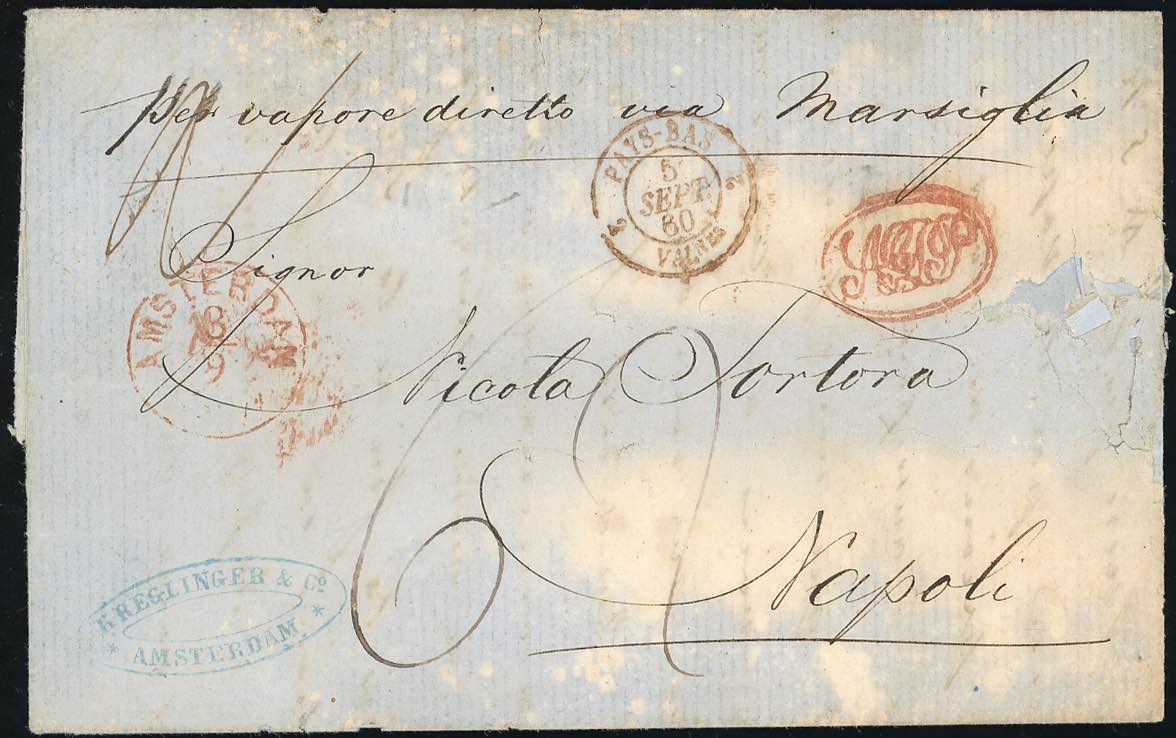 Per vapore diretto via Marsiglia
PAYS-BAS
5
SEPT.
60
2 VALNES 2
Signor
AMSTERDAM
9
Nicola Tortora
62
Napoli
KREGLINGER & Cº
* AMSTERDAM. *